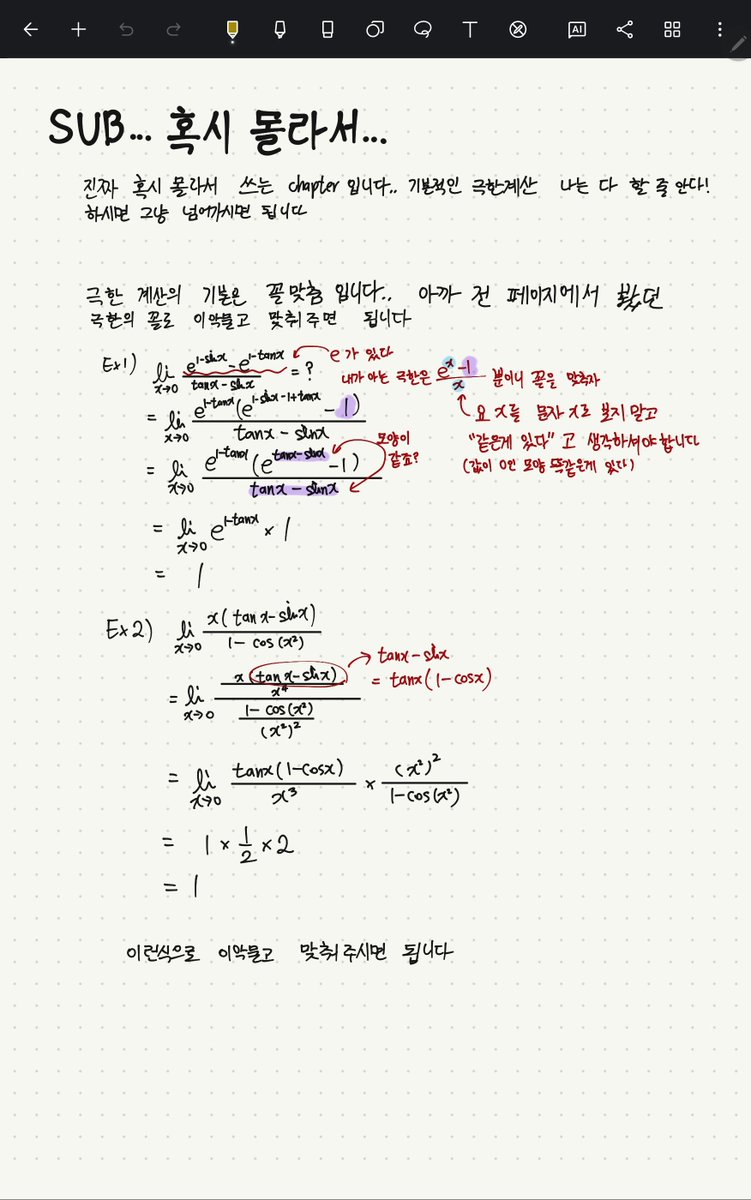 AI
SUB... 혹시 몰라서...
진짜 혹시 몰라서 쓰는 chapter 입니다.. 기본적인 극한계산 나는 다 할 줄 안다!
하시면 그냥 넘어가시면 됩니다
극한 계산의 기본은 꼴 맞춤 입니다.. 아까 전 페이지에서 봤던
극한의 꼴로 이악물고 맞춰주면 됩니다
Ex1) lim_{x→0} (e^{1-sinx} - e^{1-tanx})/(tanx - sinx) = ?
e가 있다
내가 아는 극한은 (e^x - 1)/x 뿐이니 꼴을 맞추자
= lim_{x→0} e^{1-tanx}(e^{1-sinx-1+tanx} - 1)/(tanx - sinx)
요 x를 문자 x로 보지 말고
"같은게 있다" 고 생각하셔야 합니다
(값이 0인 모양 똑같은게 있다)
= lim_{x→0} e^{1-tanx}(e^{tanx-sinx} - 1)/(tanx - sinx)
모양이
같죠?
= lim_{x→0} e^{1-tanx} × 1
= 1
Ex2) lim_{x→0} x(tanx - sinx)/(1 - cos(x²))
= lim_{x→0} (x(tanx - sinx)/x⁴)/((1 - cos(x²))/(x²)²)
→ tanx - sinx
= tanx(1 - cosx)
= lim_{x→0} tanx(1 - cosx)/x³ × (x²)²/(1 - cos(x²))
= 1 × 1/2 × 2
= 1
이런식으로 이악물고 맞춰주시면 됩니다